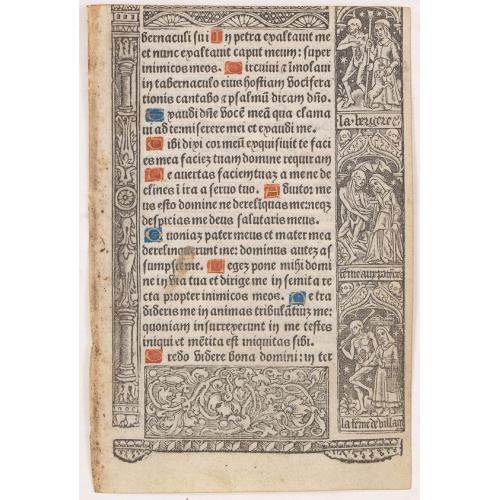 bernaculi sui In petra exaltauit me
et nunc exaltauit caput meum: super
inimicos meos. Circuiui ⁊ īmolaui
in tabernaculo eius hostiam vocifera
tionis cantabo ⁊ psalmū dicam dño.
Exaudi dñe vocē meā qua clama
ui ad te miserere mei et exaudi me.
Tibi dixit cor meū exquisiuit te faci
es mea faciez tuam domine requiram
Ne auertas faciem tuaz a me ne de
clines ī ira a seruo tuo. Adiutor me
us esto domine ne derelīquas me: neqʒ
despicias me deus salutaris meus.
Quoniaz pater meus et mater mea
derelinquerunt me: dominus autez as
sumpsit me. Legez pone mihi domi
ne in via tua et dirige me in semita re
cta propter inimicos meos. Ne tra
dideris me in animas tribulātiuz me:
quoniam insurrexerunt in me testes
iniqui et mētita est iniquitas sibi.
Credo videre bona domini: in ter
la bergere
la fēme de villaige